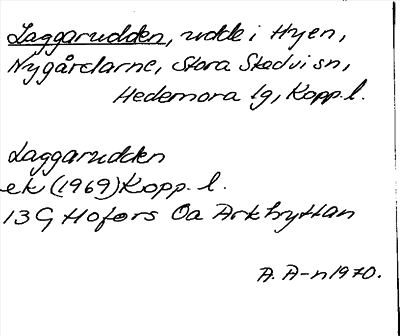 Laggarudden, udde i Hyen,
Nygårdarne, Stora Skedvi sn,
Hedemora lg, Kopp. l.
Laggarudden
ek (1969) Kopp. l.
13G Hofors 0a Arkhyttan
A. A-n 1970.